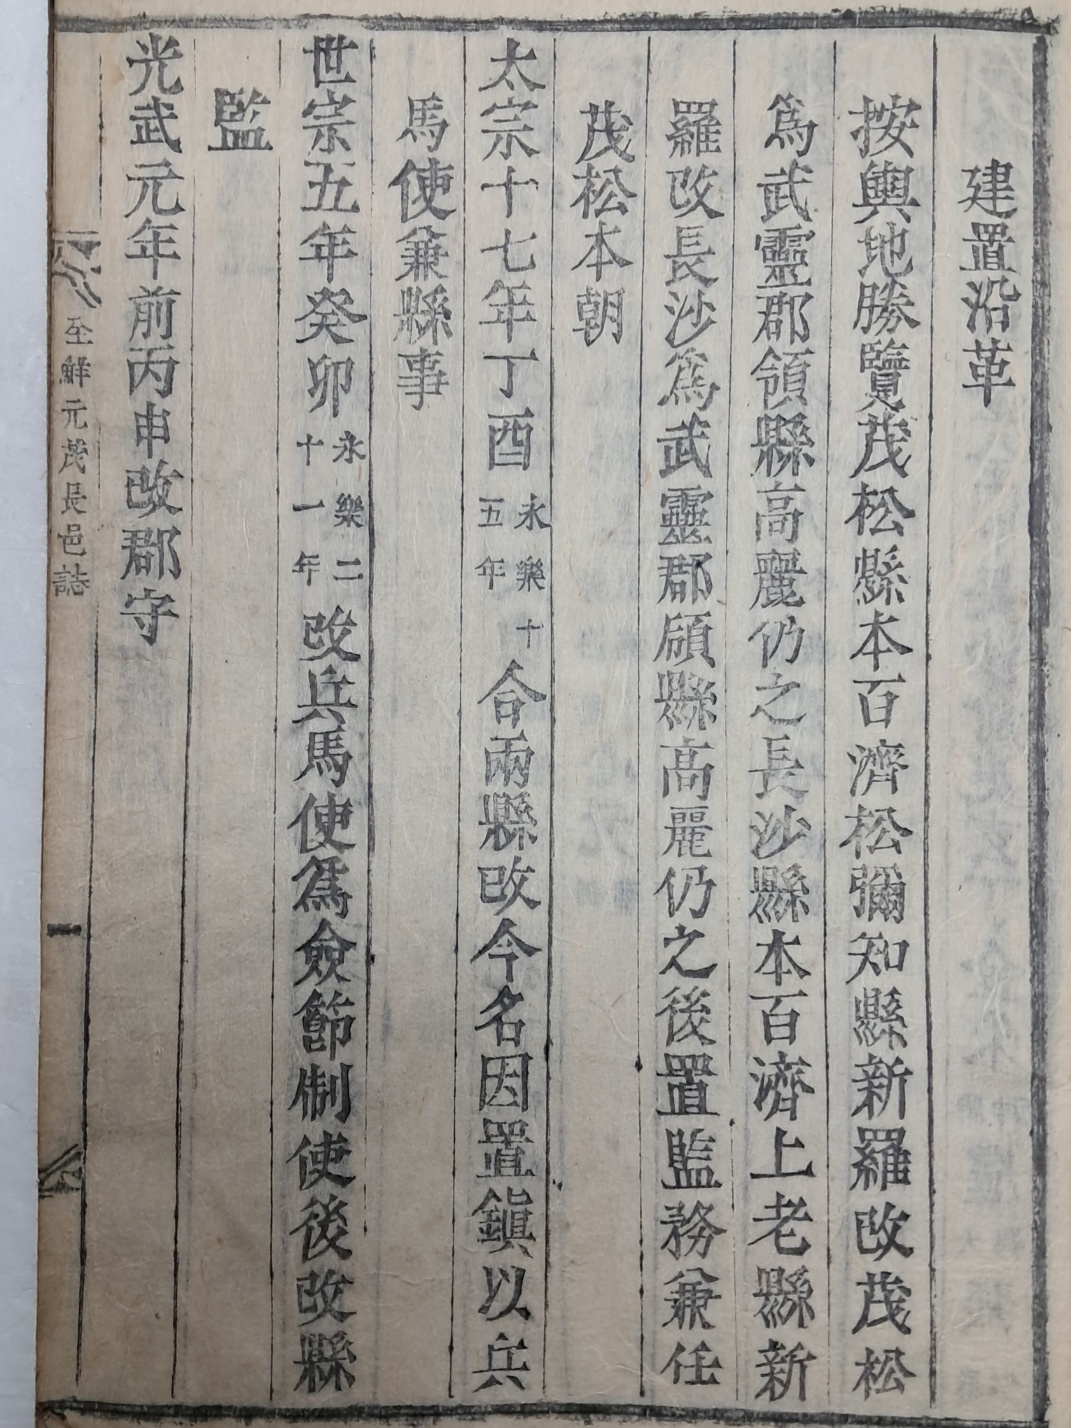 建置沿革
按輿地勝覽茂松縣本百濟松彌知縣新羅改茂松
爲武靈郡領縣高麗仍之長沙縣本百濟上老縣新
羅改長沙爲武靈郡領縣高麗仍之後置監務兼任
茂松本朝
太宗十七年丁酉永樂十五年合兩縣改今名因置鎭以兵
馬使兼縣事
世宗五年癸卯永樂二十一年改兵馬使爲僉節制使後改縣
監
光武元年前丙申改郡守
鮮元茂長邑誌
一